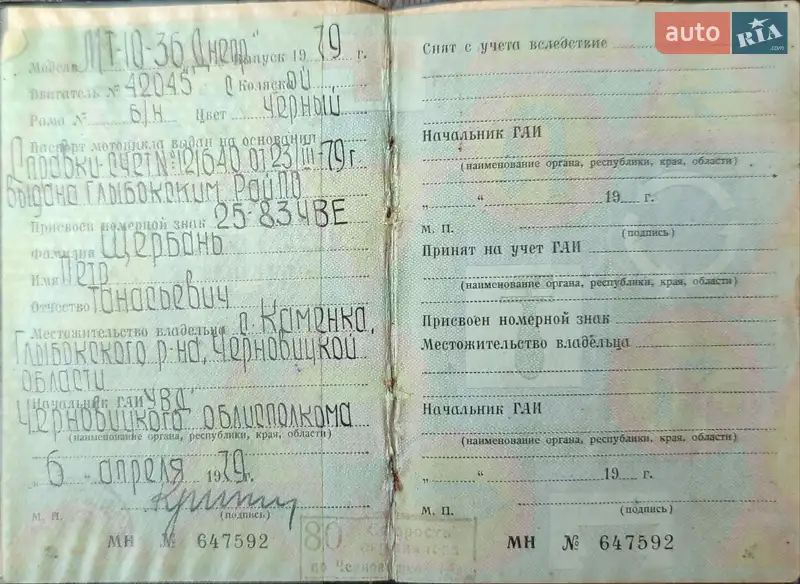 Модель МТ-10-36 "Днепр" Выпуск 1979 г.
Двигатель № 42045 с Коляской
Рама № б/н Цвет черный
Паспорт мотоцикла выдан на основании
Справки-счет № 121640 от 23/III-79 г
Выдана Глыбокским РайПО
Присвоен номерной знак 25-83 ЧВЕ
Фамилия Щербань
Имя Петр
Отчество Танасьевич
Местожительство владельца с. Каменка,
Глыбокского р-на, Черновицкой
области
Начальник ГАИ УВД
Черновицкого облисполкома
(наименование органа, республики, края, области)
„6 - апреля 1979 г.
М. П. (подпись)
МН № 647592
80 Скорость
по
Снят с учета вследствие
Начальник ГАИ
(наименование органа, республики, края, области)
„ “ 19 г.
М. П. (подпись)
Принят на учет ГАИ
(наименование органа, республики, края, области)
Присвоен номерной знак
Местожительство владельца
Начальник ГАИ
(наименование органа, республики, края, области)
„ “ 19 г.
М. П. (подпись)
МН № 647592
auto RIA .com